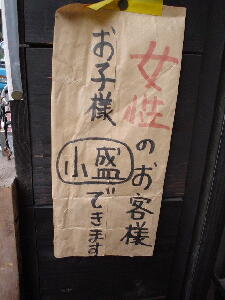 女性のお客様
お子様
小盛できます